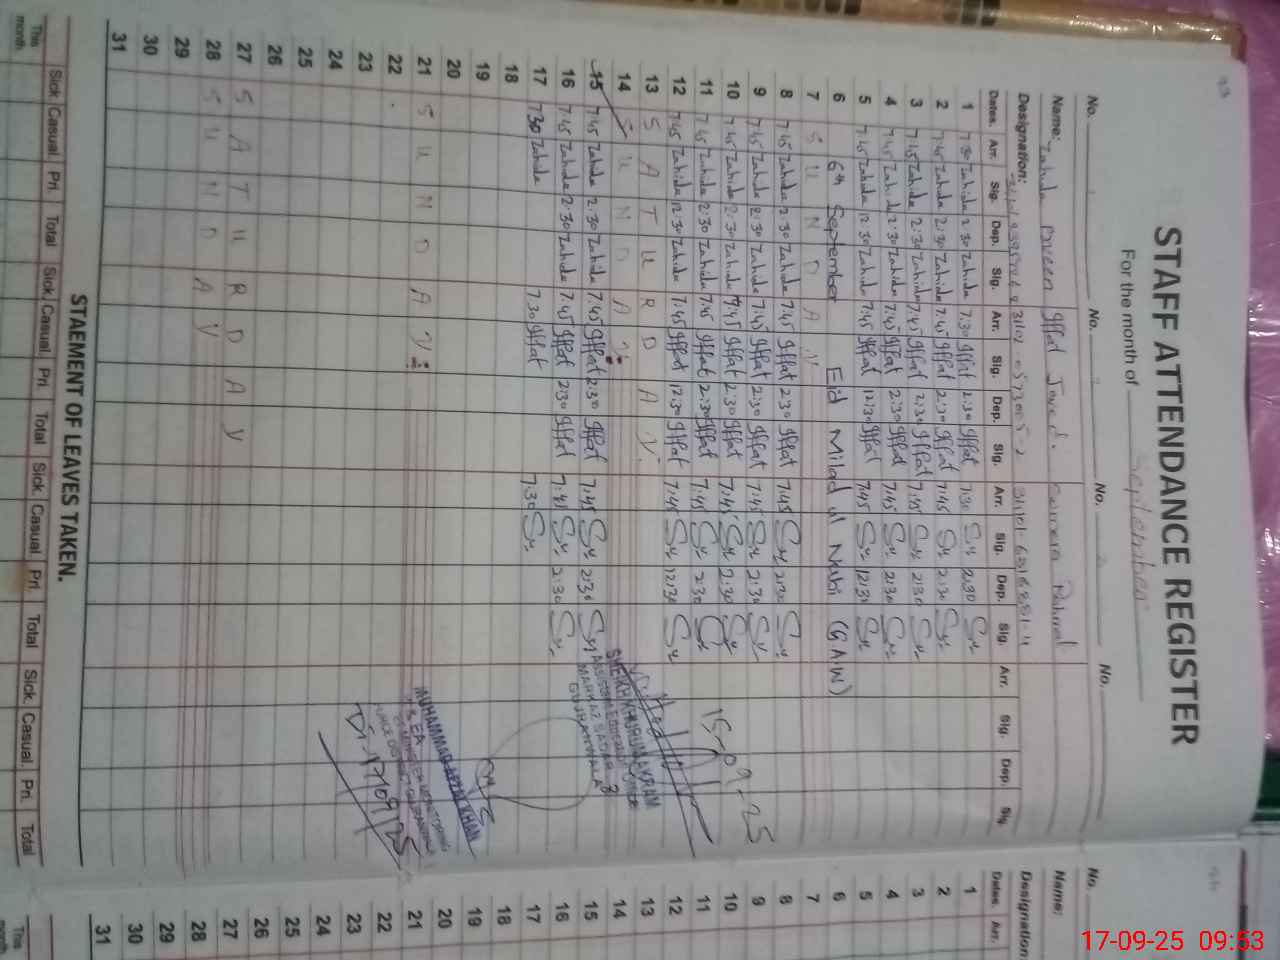 93
STAFF ATTENDANCE REGISTER
For the month of September
No. No. No. No.
Name: Zahida Parveen Iffat Javed.
Designation:
Dates. Arr. Sig. Dep. Sig. Arr. Sig. Dep. Sig. Arr. Sig. Dep. Sig. Arr. Sig. Dep. Sig.
1 7:30 Zahida 2:30 Zahida 7:30 Iffat 2:30 Iffat 7:30 2:30
2 7:45 Zahida 2:30 Zahida 7:45 Iffat 2:30 Iffat 7:45 2:30
3 7:45 Zahida 2:30 Zahida 7:45 Iffat 2:30 Iffat 7:45 2:30
4 7:45 Zahida 2:30 Zahida 7:45 Iffat 2:30 Iffat 7:45 2:30
5 7:45 Zahida 12:30 Zahida 7:45 Iffat 12:30 Iffat 7:45 12:30
6 6th September Eid Milad ul Nabi (S.A.W)
7 SUNDAY
8 7:45 Zahida 2:30 Zahida 7:45 Iffat 2:30 Iffat 7:45 2:30
9 7:45 Zahida 2:30 Zahida 7:45 Iffat 2:30 Iffat 7:45 2:30
10 7:45 Zahida 2:30 Zahida 7:45 Iffat 2:30 Iffat 7:45 2:30
11 7:45 Zahida 2:30 Zahida 7:45 Iffat 2:30 Iffat 7:45 2:30
12 7:45 Zahida 12:30 Zahida 7:45 Iffat 12:30 Iffat 7:45 12:30
13 SATURDAY
14 SUNDAY
15 7:45 Zahida 2:30 Zahida 7:45 Iffat 2:30 Iffat 7:45 2:30
16 7:45 Zahida 2:30 Zahida 7:45 Iffat 2:30 Iffat 7:45 2:30
17 7:30 Zahida 7:30 Iffat 7:30
18
19
20
21 SUNDAY
22
23
24
25
26
27 SATURDAY
28 SUNDAY
29
30
31
15-09-25
SHEIKH KHURUM AKRAM
MARKAZ SADAR
GUJRANWALA
MUHAMMAD AFZAL KHAN
17/09/25
STAEMENT OF LEAVES TAKEN.
Sick Casual Pri. Total Sick. Casual. Pri. Total Sick. Casual. Pri. Total Sick. Casual. Pri. Total
This month.
No.
Name:
Designation:
Dates. Arr.
1
2
3
4
5
6
7
8
9
10
11
12
13
14
15
16
17
18
19
20
21
22
23
24
25
26
27
28
29
30
31
This month.
17-09-25 09:53